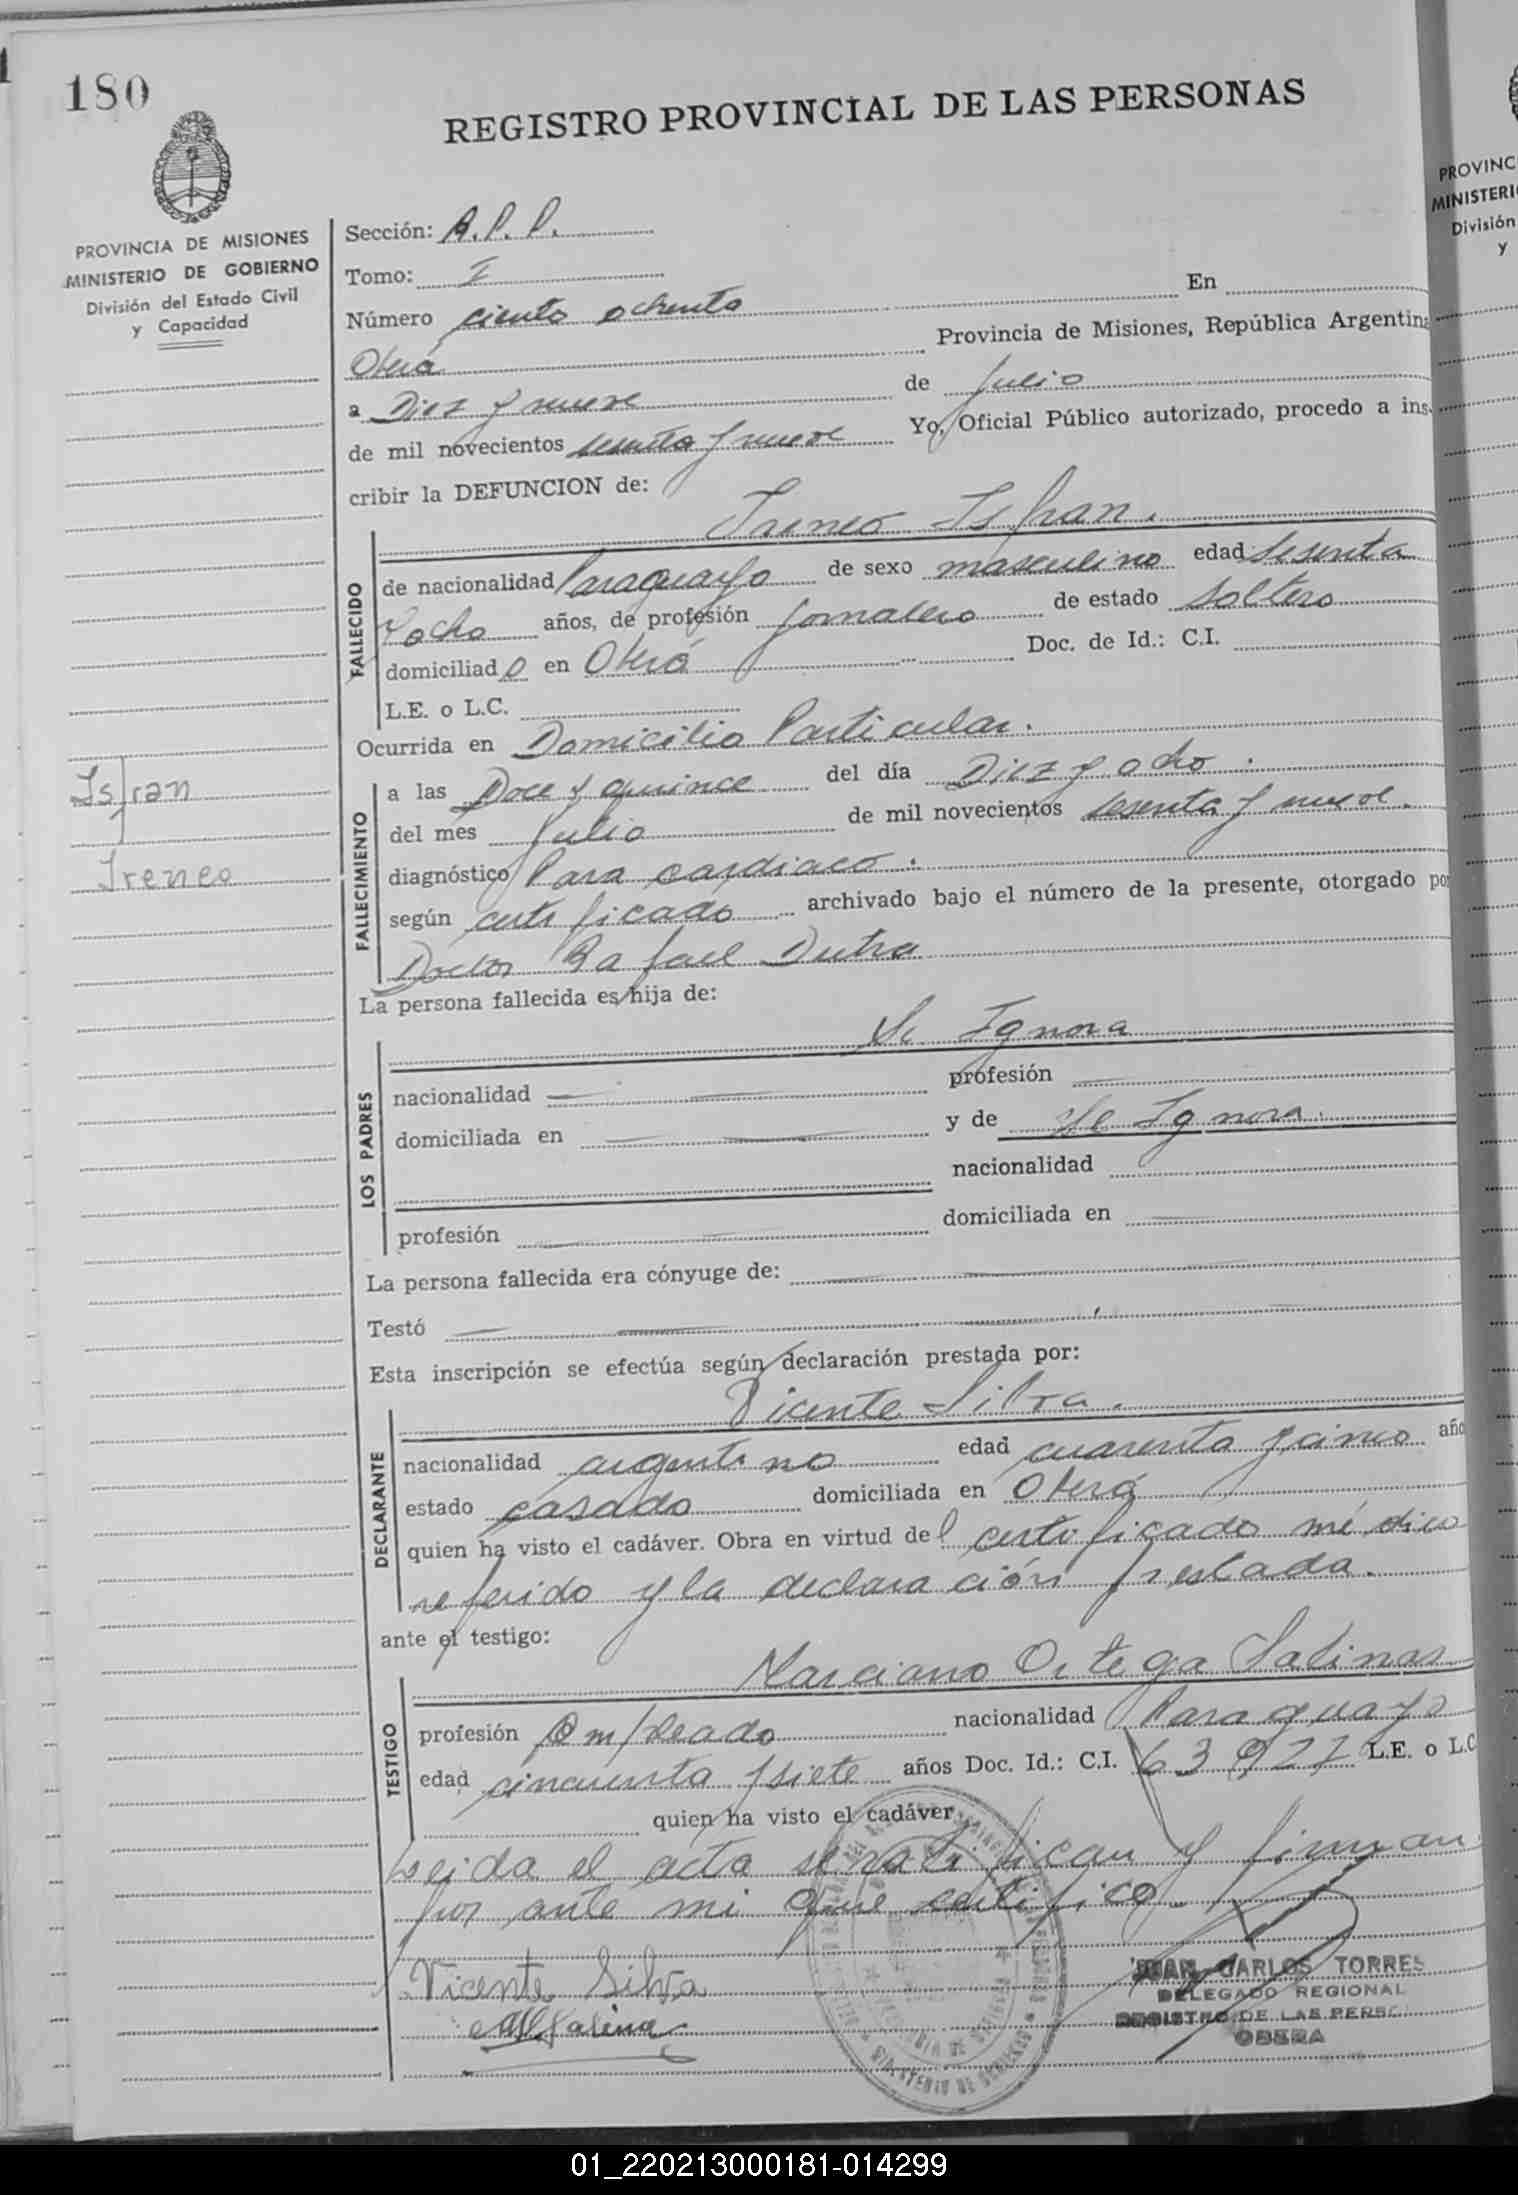 180
REGISTRO PROVINCIAL DE LAS PERSONAS
PROVINCIA DE MISIONES
MINISTERIO DE GOBIERNO
División del Estado Civil
y Capacidad
Sección: A.P.P.
Tomo: I
Número ciento ochenta En
Oberá Provincia de Misiones, República Argentina
a Diez y nueve de Julio
de mil novecientos sesenta y nueve Yo, Oficial Público autorizado, procedo a ins-
cribir la DEFUNCION de:
Ireneo Isfran.
FALLECIDO
de nacionalidad Paraguayo de sexo masculino edad Sesenta
y ocho años, de profesión Jornalero de estado Soltero
domiciliado en Oberá Doc. de Id.: C.I.
L.E. o L.C.
Ocurrida en Domicilio Particular.
Isfran
Ireneo
FALLECIMIENTO
a las Doce y quince del día Diez y ocho.
del mes Julio de mil novecientos sesenta y nueve.
diagnóstico Para cardiaco.
según certificado archivado bajo el número de la presente, otorgado por
Doctor Rafael Dutra
La persona fallecida es hija de:
Se Ignora
LOS PADRES
nacionalidad profesión
domiciliada en y de Se Ignora.
nacionalidad
profesión domiciliada en
La persona fallecida era cónyuge de:
Testó
Esta inscripción se efectúa según declaración prestada por:
Vicente Silva.
DECLARANTE
nacionalidad argentino edad cuarenta y cinco año
estado casado domiciliada en Oberá
quien ha visto el cadáver. Obra en virtud del certificado médico
referido y la declaración prestada.
ante el testigo:
Marciano Ortega Salinas
TESTIGO
profesión Empleado nacionalidad Paraguayo
edad cincuenta y siete años Doc. Id.: C.I. 63.927 L.E. o L.C
quien ha visto el cadáver
Leida el acta se ratifican y firman
por ante mi que certifico.
Vicente Silva
JUAN CARLOS TORRES
DELEGADO REGIONAL
REGISTRO DE LAS PERSO
OBERA
PROVINC
MINISTERI
División
y
01_220213000181-014299